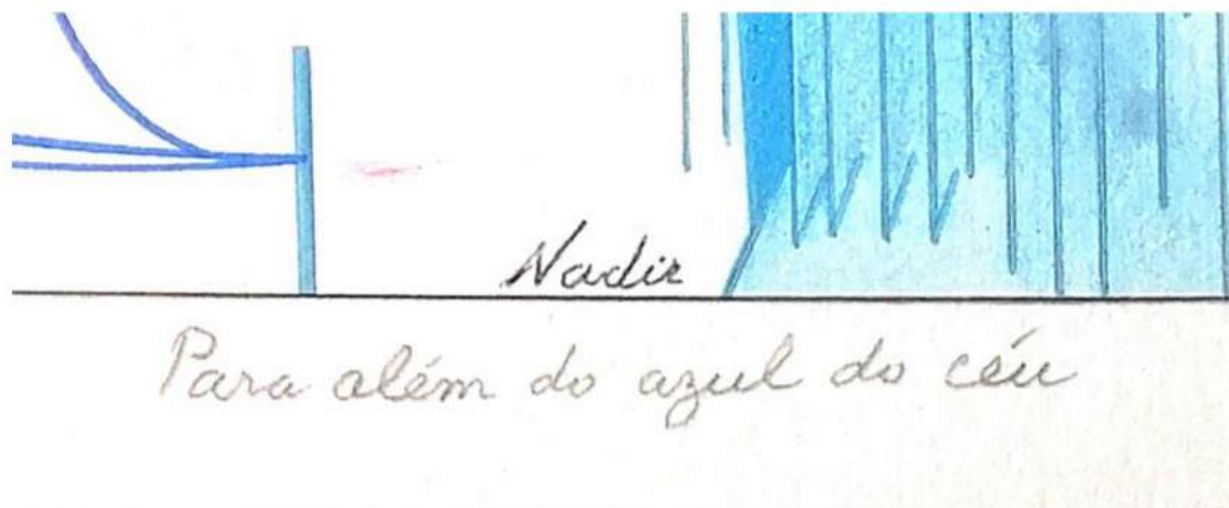 Nadir
Para além do azul do céu